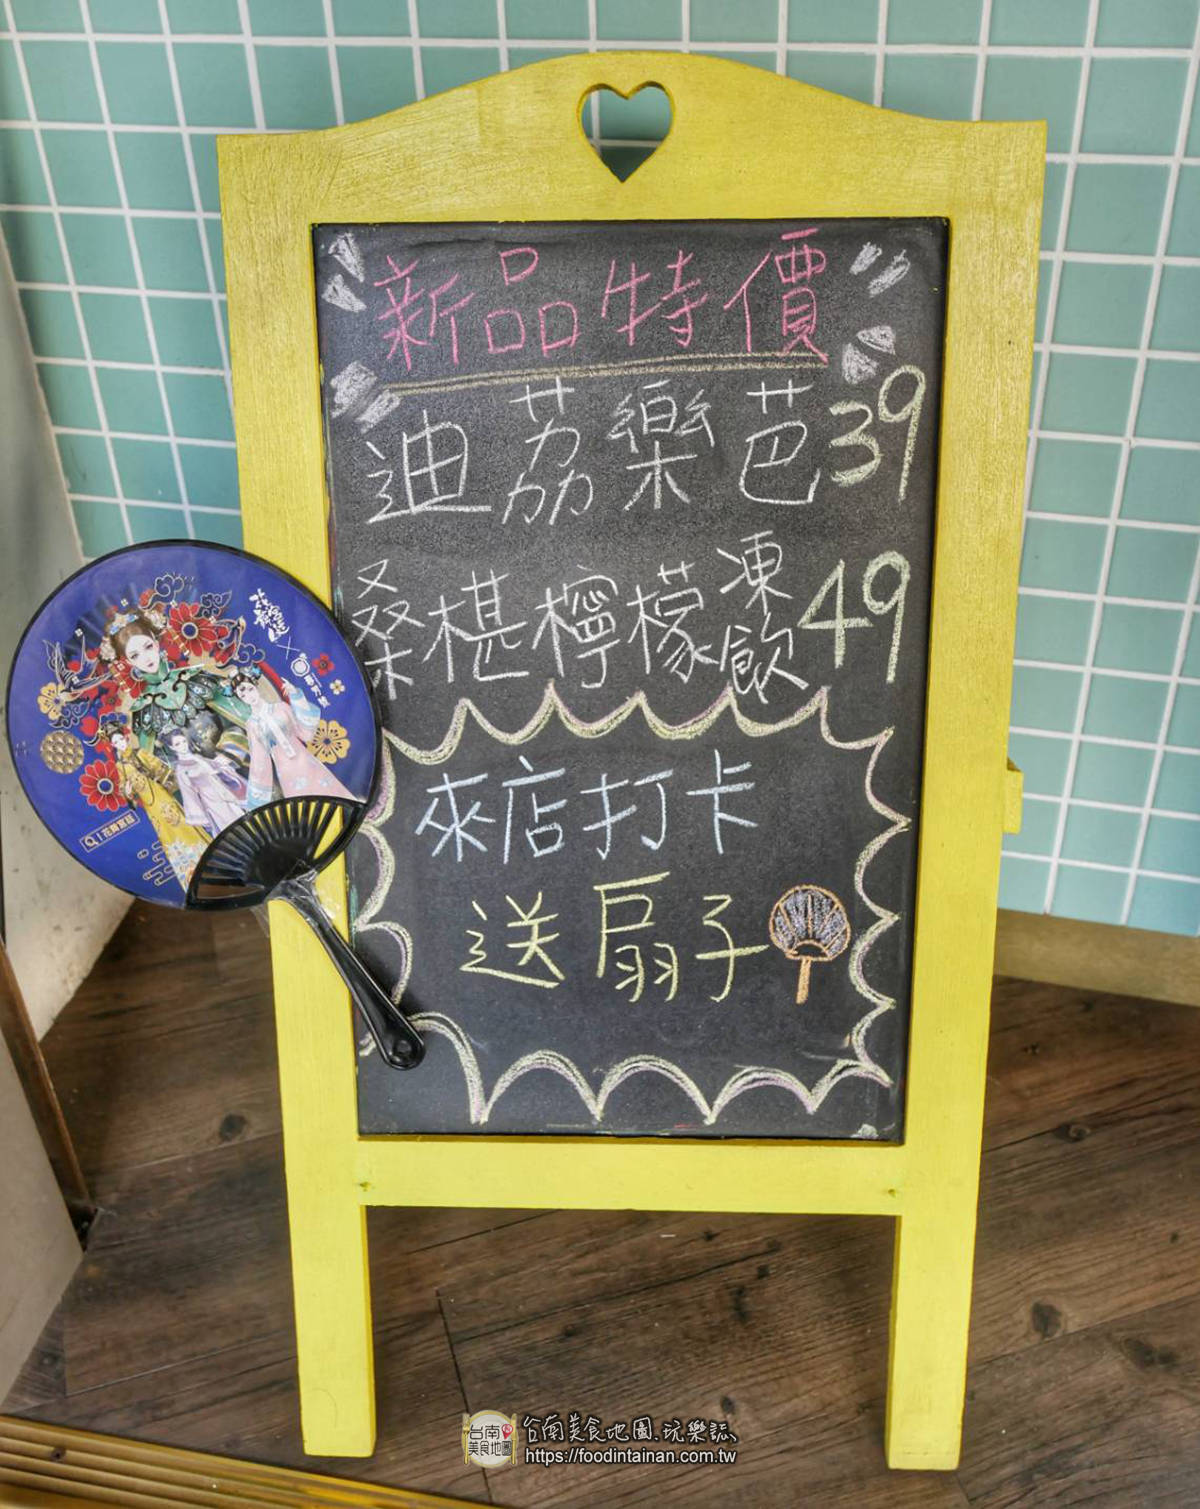 新品特價
迪荔樂芭39
桑椹檸檬凍飲49
來店打卡
送扇子
花舞宮廷
花舞宮廷
台南
美食地圖
台南美食地圖.玩樂誌.
https://foodintainan.com.tw